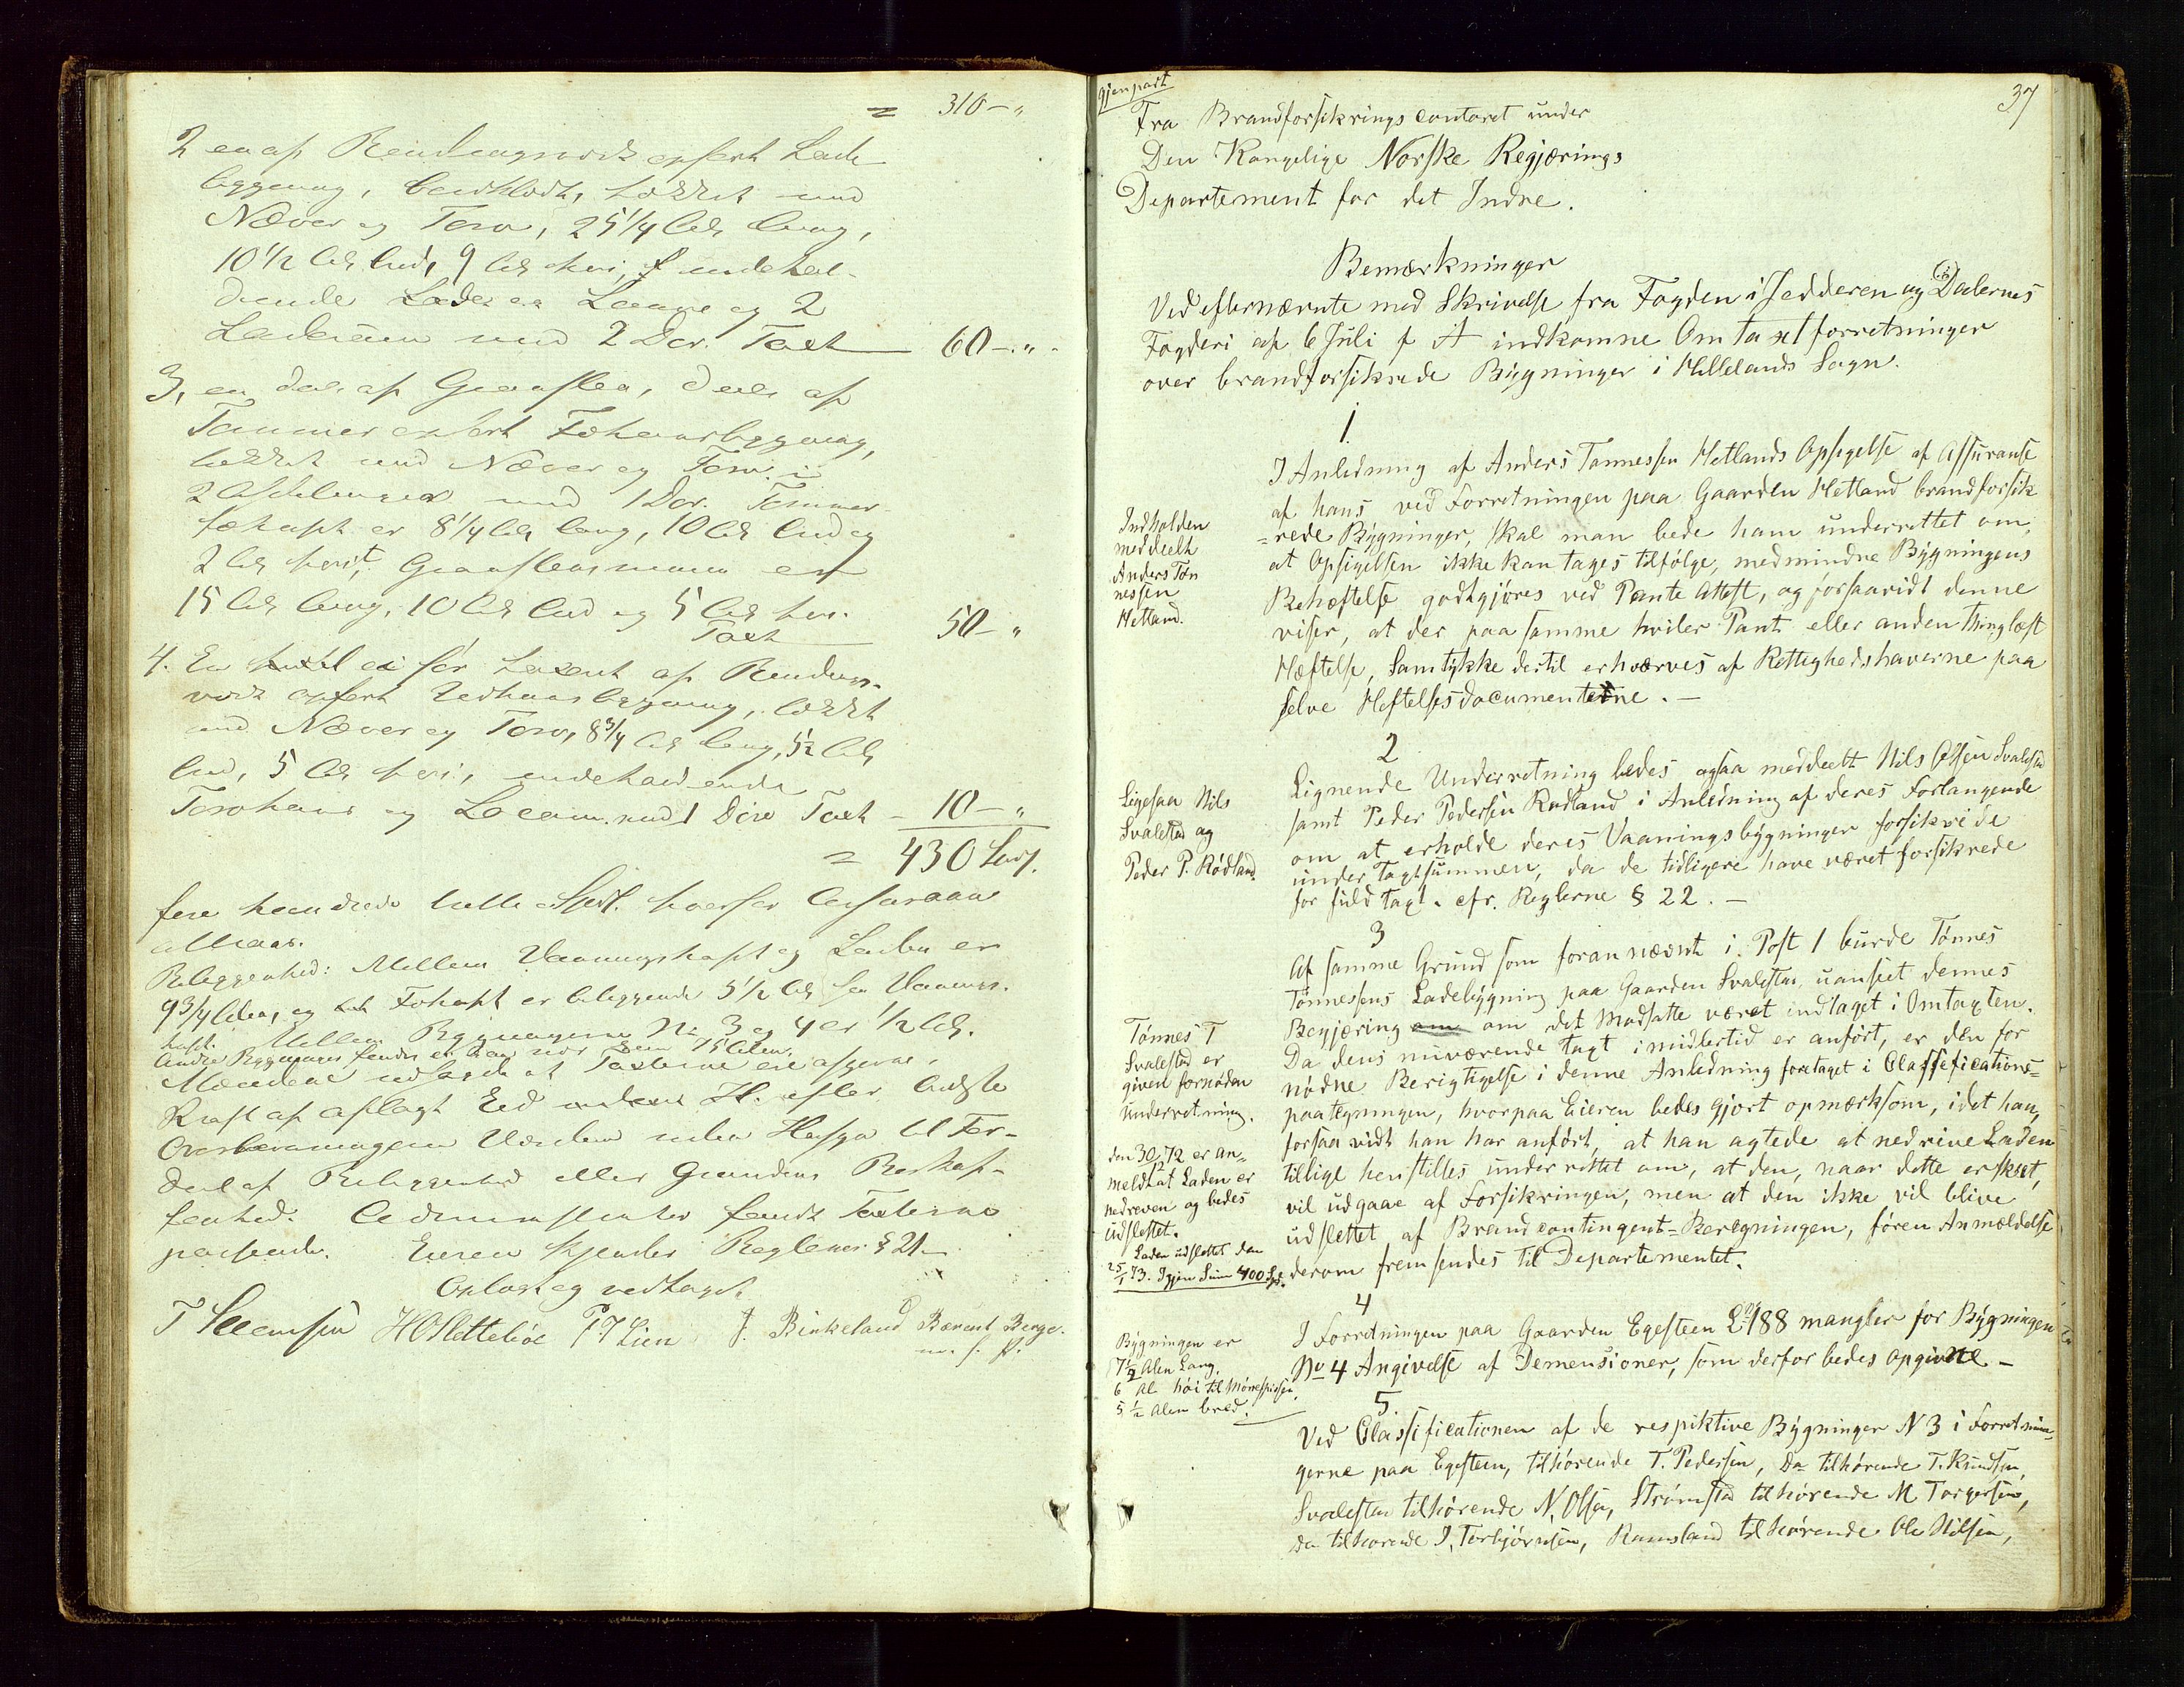 = 310 – "
2 en af Bindingsverk opført Lade
bygning, bordklædt, tækket med
Næver og Torv, 25 1/4 Al. lang,
10 1/2 Al. bred, 9 Al. høi, indehol-
dende Laave og 2
Laderum med 2 Dør. Taxt 60 – "
3, en del af Graasten, dels af
Tømmer opført Fæhusbygning,
tækket med Næver og Torv i
2 med 1 Dør. Tømmer
fæhuset er 8 1/4 Al. lang, 10 Al. bred og
2 Al. høit, Graastensmuren er
15 Al. lang, 10 Al. bred og 5 Al. høi.
Taxt 50 – "
4. En af Bindings-
verk opført Vedhuusbygning, tækket
med Næver og Torv, 8 3/4 Al. lang, 5 1/2 Al.
bred, 5 Al. høi, indeholdende
Torvhuus og med 1 Dør Taxt – 10 – "
= 430
fire hundrede Spd. hvorfor Assurance
attraaes.
Beliggenhed: Mellem Vaaningshuset og Laden er
9 3/4 Alen, og Fæhuset er beliggende 5 1/2 Al. fra Vaanings-
huset. Mellem Bygningerne No 3 og 4 er 1/2 Al.
Andre Bygninger findes ei her nær
Mændene udsagde at Taxterne ere afgivne i
Kraft af aflagt Eed efter bedste
Overbevisning uden Hensyn til For-
del af Beliggenhed eller Grundens Beskaf-
fenhed. fandt Taxterne
passende. Eieren kjender Reglerne § 21.
Oplæst og vedtaget
H O Slettebøe P J Lien J. Birkeland Bærent Berge.
m. f. P.
Gjenpart
37
Fra Brandforsikringscontoret under
Den Kongelige Norske Regjerings
Departement for det Indre.
Bemærkninger
Ved efternævnte med Skrivelse fra Fogden i Jedderen og Dalernes
Fogderi af 6 Juli f A indkomne Omtaxtforretninger
over brandforsikrede Bygninger i Hellelands Sogn.
1.
I Anledning af Anders Tønnessen Hetlands Opsigelse af Assuranse
af hans ved Forretningen paa Gaarden Hetland brandforsik
=rede Bygninger, skal man bede ham underrettet om,
at Opsigelsen ikke kan tages tilfølge, medmindre Bygningens
Behæftelse godtgjøres ved Pante Attest, og forsaavidt denne
viser, at der paa samme hviler Pant eller anden thinglæst
Hæftelse, Samtykke dertil erhværves af Rettighedshaverne paa
selve Heftelsesdocumenterne. –
Indholden
meddeelt
Anders Tøn
nessen
Hetland.
2
Lignende Underretning bedes ogsaa meddeelt Nils Olsen Svalestad
samt Peder Pedersen Rødland i Anledning af deres Forlangende
om at erholde deres Vaaningsbygninger forsikrede
under Taxtsummen, da de tidligere have været forsikrede
for fuld Taxt. cfr. Reglerne § 22. –
Ligesaa Nils
Svalestad og
Peder P. Rødland.
3
Af samme Grund som foran nævnt i Post 1 burde Tønnes
Tønnessens Ladebygning paa Gaarden Svalestad, uanseet dennes
Begjæring om om det Modsatte været indtaget i Omtaxten.
Da dens nuværende Taxt imidlertid er anført, er den for
nødne Berigtigelse i denne Anledning foretaget i Classefications=
paategningen, hvorpaa Eieren bedes gjort opmærksom, idet han,
forsaavidt han har anført, at han agtede at nedrive Laden
tillige henstilles underrettet om, at den, naar dette er skeet,
vil udgaae af Forsikringen, men at den ikke vil blive
udslettet af Brandcontingent=Beregningen, føren Anmældelse
derom fremsendes til Departementet.
Tønnes T
Svalestad er
given fornøden
Underretning.
den 30/12 72 er an=
meldt at Laden er
nedreven og bedes
udslettet.
Laden udslettet den
25/1 73. Igjen Sum 400 Spd.
4
I Forretningen paa Gaarden Egesteen L No 188 mangler for Bygningen
No 4 Angivelse af Demensioner, som derfor bedes opgivne –
Bygningen er
7 1/2 Alen Lang,
6 Al høi til Mønespidsen
5 1/2 Alen bred.
5.
Ved Classificationen af de respiktive Bygninger N 3 i Forretnin=
gerne paa Egesteen, tilhørende T. Pedersen, Do tilhørende T. Knudsen,
Svalestad tilhørende N. Olsen, Strømstad tilhørende M Torgersen,
Do tilhørende J. Torbjørnsen, Ramsland tilhørende Ole Nilsen,